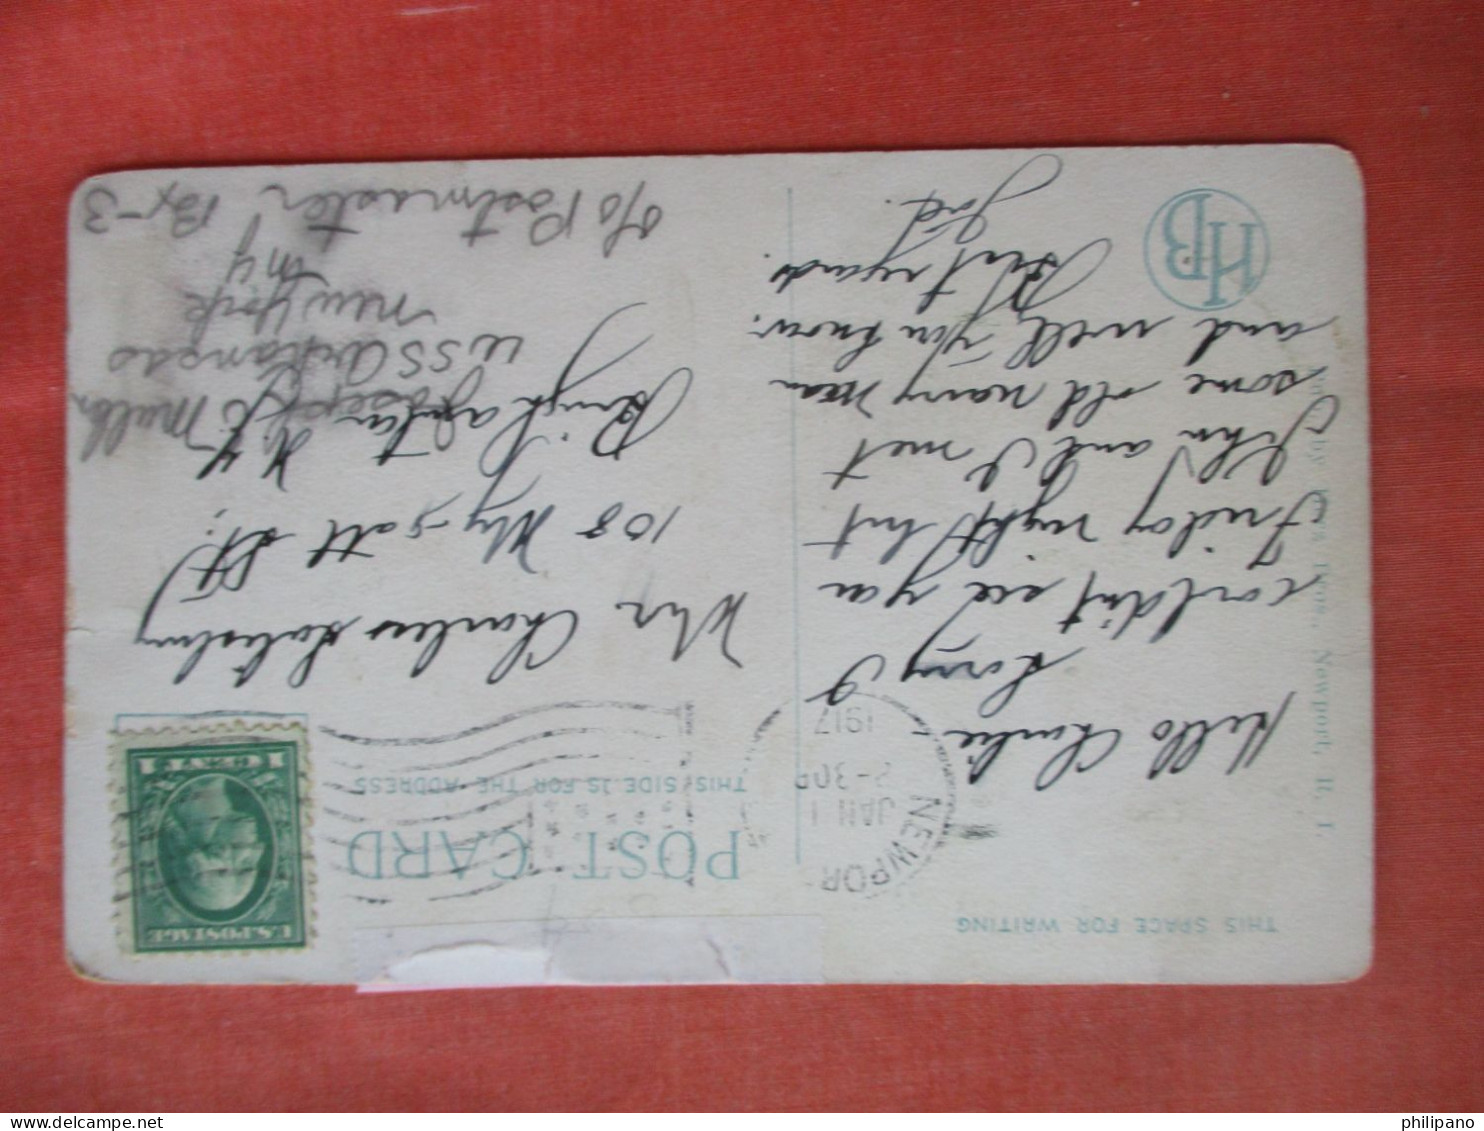 THIS SPACE FOR WRITING
Hello Charlie
Sorry I
couldn't see you
Friday night but
John and I met
some old navy men
and well, you know.
Best regards
HB
Bros., Newport, R. I.
NEWPOR
JAN 1
2-30P
1917
POST CARD
THIS SIDE IS FOR THE ADDRESS
U.S. POSTAGE
1 CENT 1
Mr. Charles Salisbury
108 St.
N.Y.
Joseph
USS Arkansas
New York
NY
c/o Postmaster Bx-3
philipano